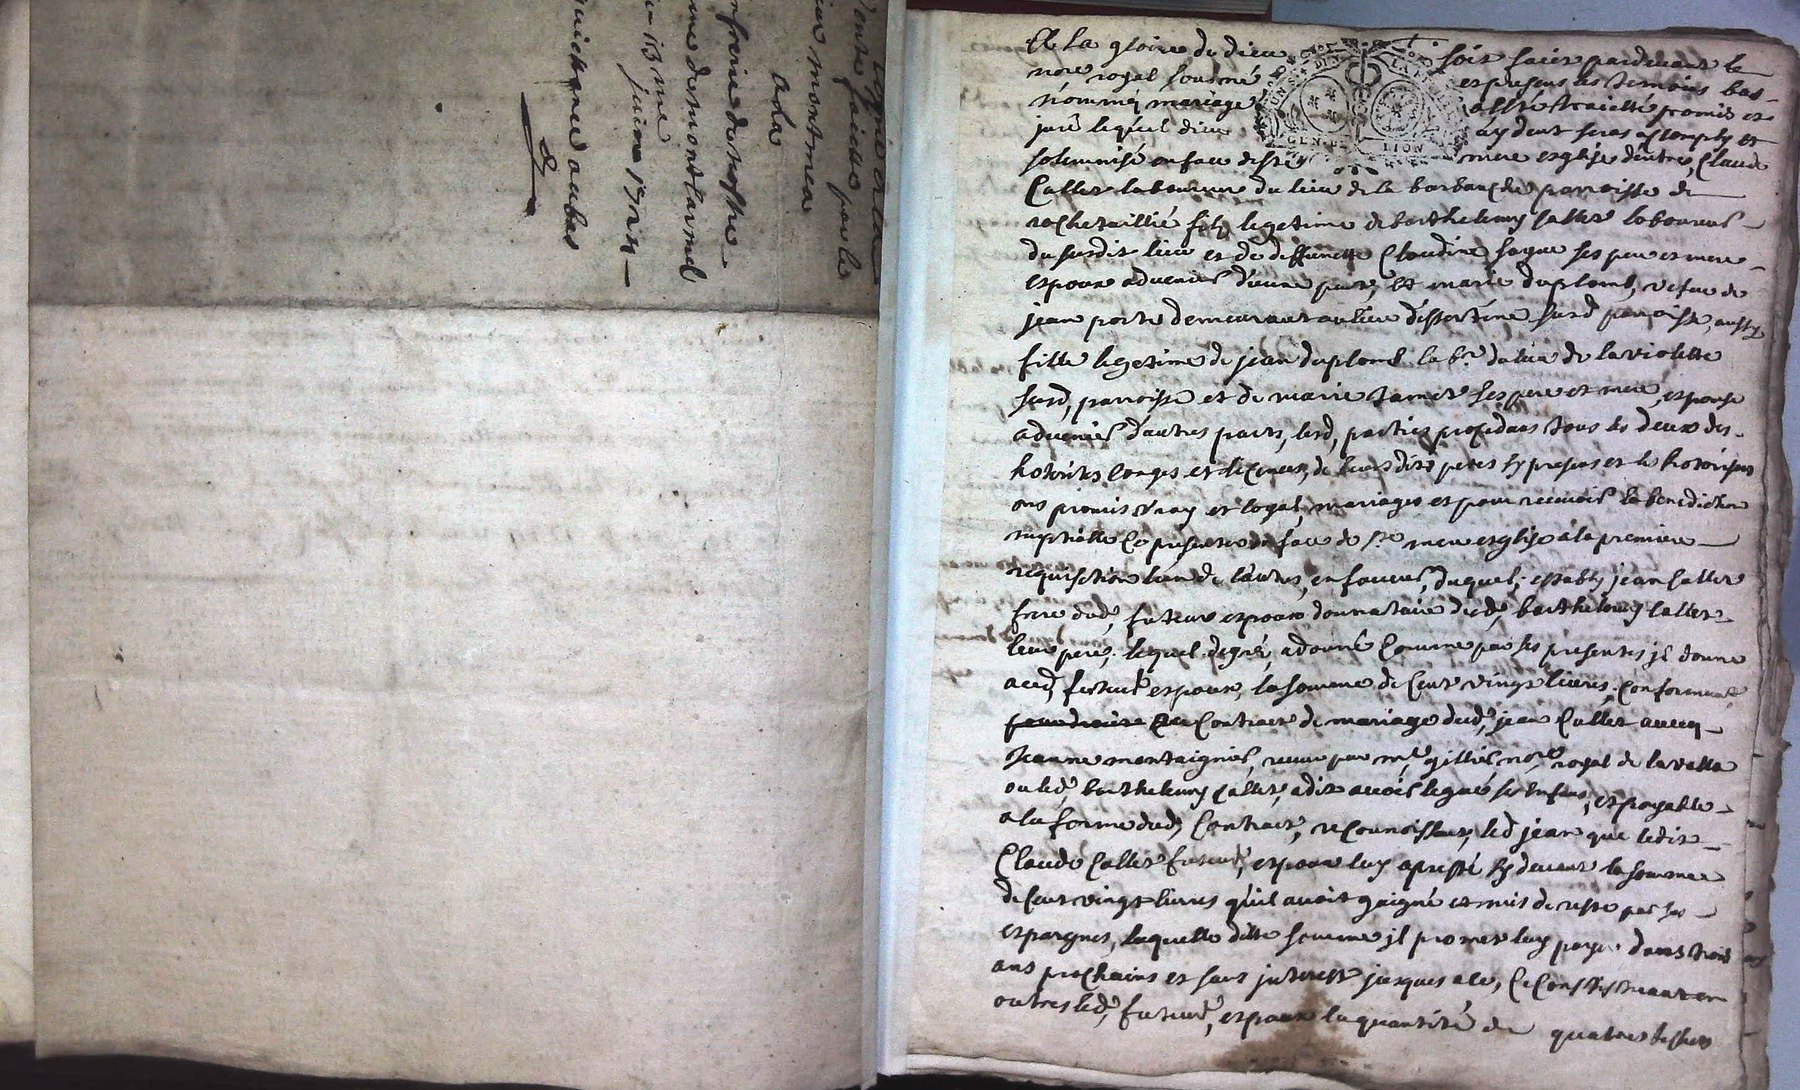 A la gloire de dieu soit faict pardevant le
no.re royal sousné et presens les temoins bas
nommés mariage a esté traicté promis et
juré lequel dieu aydant seras acomply et
solemnisé en face de s.te mere esglise d'entre Claude
Callet laboureur du lieu de la barbanche parroisse de
rochetaillié fils legetime de barthelemy Callet laboureur
du susdit lieu et de deffunctte Claudine faque ses pere et mere
espoux advenir d'une part, Et marie duplomb, vefve de
jean porte demeurant au lieu d'essertine susd parroisse, aussy
fille legetime de jean duplomb lab.r du lieu de la violette
susd, parroisse et de marie tamet ses pere et mere, espouse
advenir d'autres part, lesd, parties procedans tous les deux des
hotorités conges et licences, de leurs dits peres jcy presens et les hotorisans
ont promis vray et loyal, mariages et pour recevoir la benediction
nuptialle ce presenter en face de s.te mere esglise à la premiere
requisition l'un de l'autres, en faveur, duquel, estably jean Callet
frere dud, futeur espoux donnataire dud, barthelemy Callet
leur pere, lequel, de gré, a donné Comme par ses presentes jl donne
aud, futeur espoux, la somme de Cent vingt livres, Conformement
au Contract de mariage dud, jean Callet avecq
Jeanne montaignier, receu par m.e gillier no.re royal de lavalla
ou led, barthelemy Callet, a dit avoir legué ses enfans, et payable
a la forme dud, Contract, reconnoissant, led jean que ledit
Claude Callet futeur, espoux luy a presté Cy devant la somme
de Cent vingt livres qu'il avoit gaigné et mis de reste par ses
espargnes, laquelle ditte somme jl promet luy payer dans trois
ans prochains et sans jnterest jusques a ce, Ce Constistuant en
outres led, futeur, espoux la quantité de quatres bichets
faicte par le
a la
juin 1724